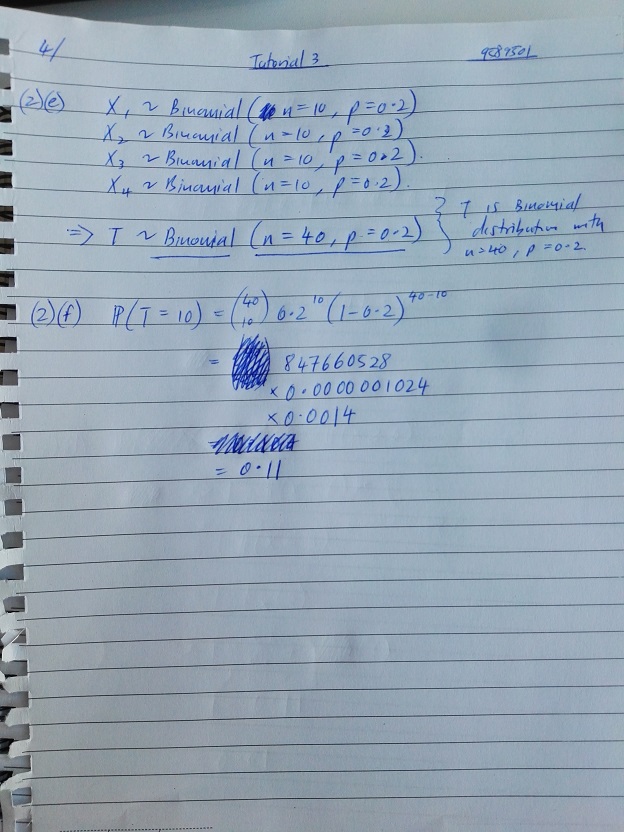 4/ Tutorial 3 9589501
(2)(e) X₁ ~ Binomial (n=10, p=0.2)
X₂ ~ Binomial (n=10, p=0.2)
X₃ ~ Binomial (n=10, p=0.2).
X₄ ~ Binomial (n=10, p=0.2).
⇒ T ~ Binomial (n=40, p=0.2) } T is Binomial
distribution with
n=40, p=0.2
(2)(f) ℙ(T=10) = (40 10) 0.2^10 (1-0.2)^40-10
= 847660528
×0.0000001024
×0.0014
= 0.11